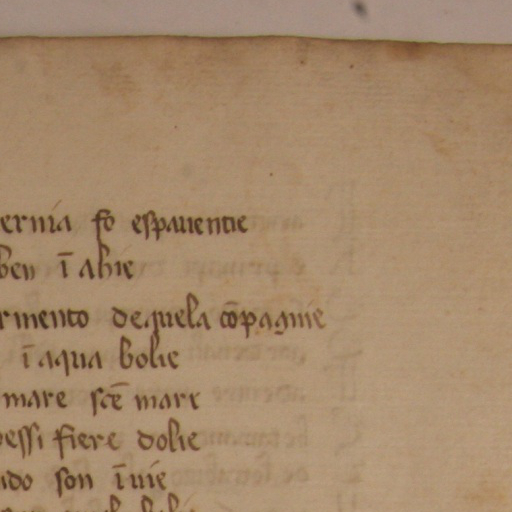 ernia fo espauentie
ben ī abie
rmento dequela cōpagnie
ī aqua bolie
mare scē mare
essi fiere dolie
ido son ī uie